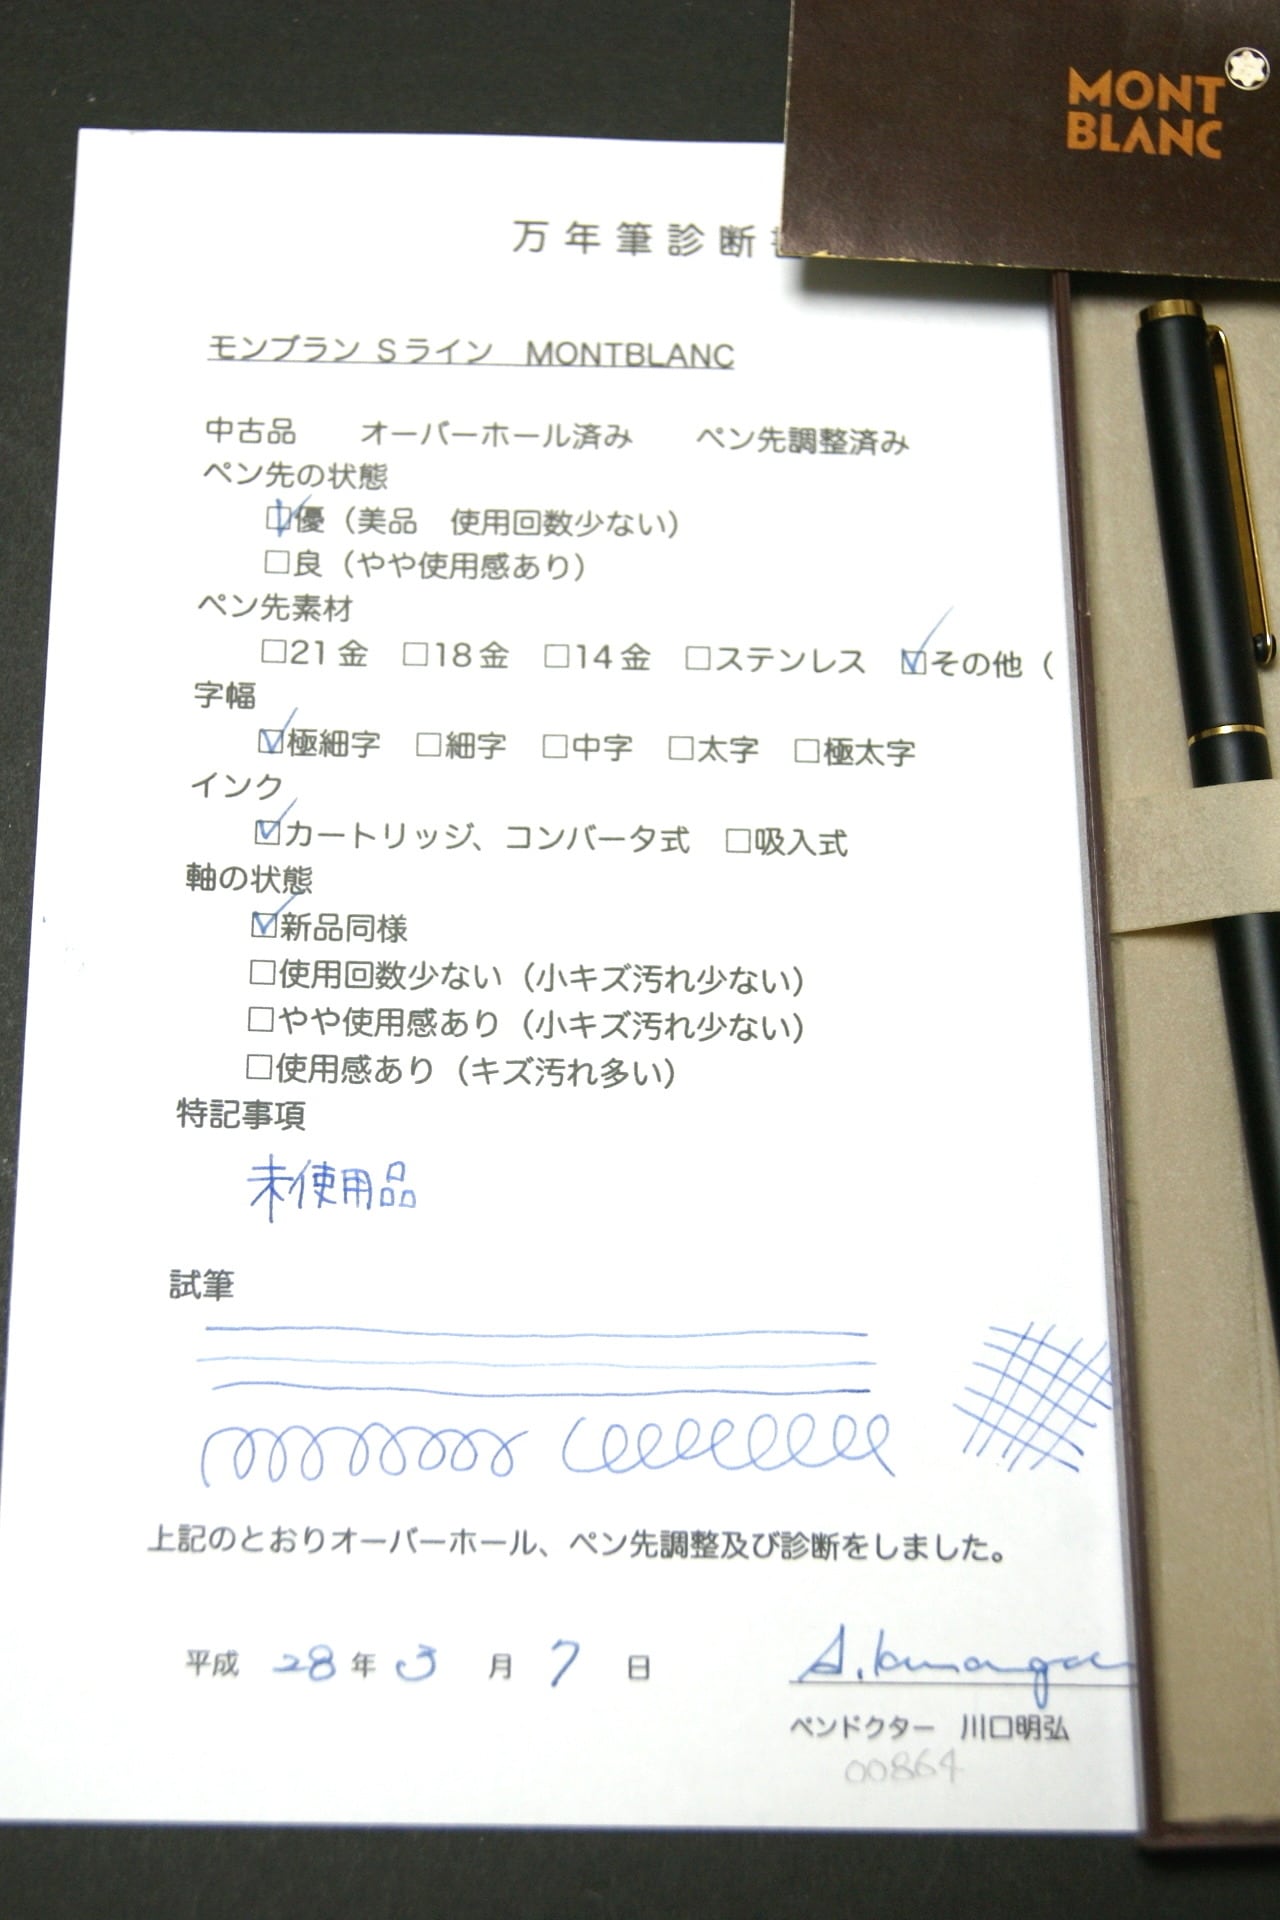 MONT
BLANC
万年筆診断
モンブラン Sライン　MONTBLANC
中古品　オーバーホール済み　ペン先調整済み
ペン先の状態
☑優（美品　使用回数少ない）
□良（やや使用感あり）
ペン先素材
□21金　□18金　□14金　□ステンレス　☑その他（
字幅
☑極細字　□細字　□中字　□太字　□極太字
インク
☑カートリッジ、コンバータ式　□吸入式
軸の状態
☑新品同様
□使用回数少ない（小キズ汚れ少ない）
□やや使用感あり（小キズ汚れ少ない）
□使用感あり（キズ汚れ多い）
特記事項
未使用品
試筆
上記のとおりオーバーホール、ペン先調整及び診断をしました。
平成 28 年 3 月 7 日
ペンドクター　川口明弘
00864